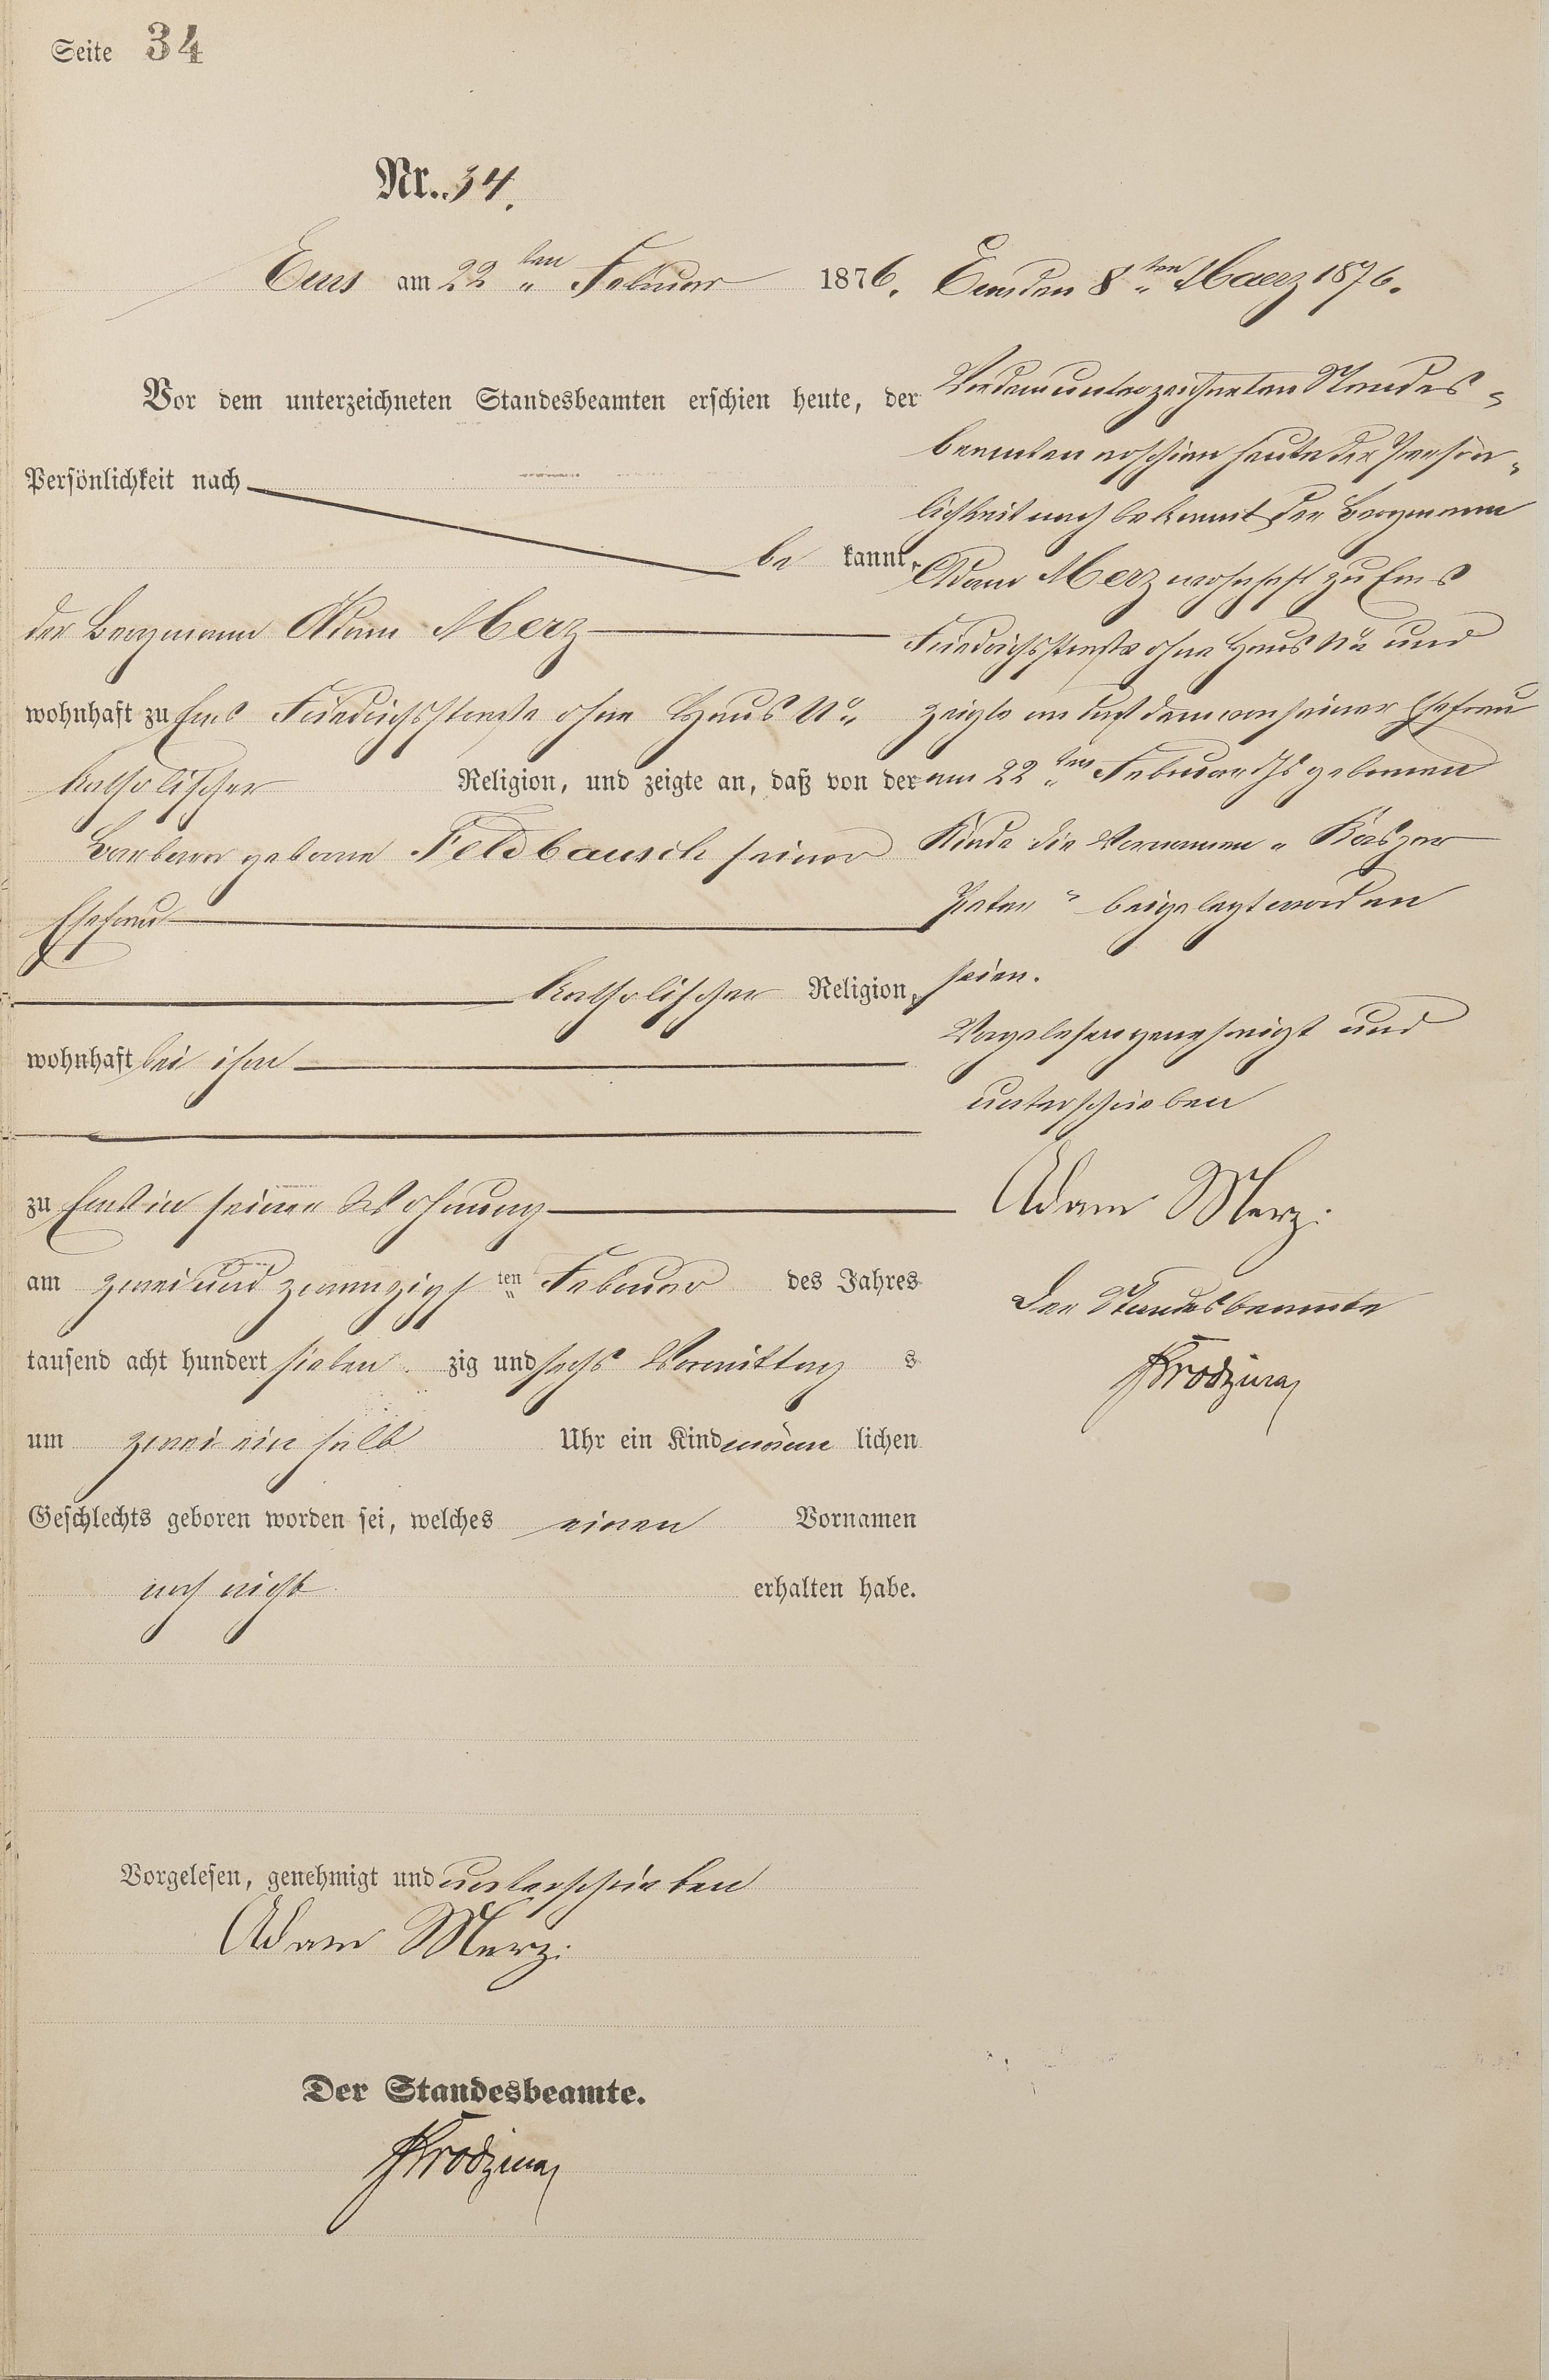 Seite 34
Nr. 34.
Ems am 22ten Februar 1876.
Vor dem unterzeichneten Standesbeamten erschien heute, der
Persönlichkeit nach
be kannt,
der Bergmann Adam Merz
wohnhaft zu Ems Friedrichsstraße ohne Haus No
katholischer Religion, und zeigte an, daß von der
Barbara geborne Feldbausch seiner
Ehefrau
katholischer Religion,
wohnhaft bei ihm
zu Ems in seiner Wohnung
am zwei und zwanzigsten Februar des Jahres
tausend acht hundert sieben zig und sechs Vormittag s
um zwei ein halb Uhr ein Kind männ lichen
Geschlechts geboren worden sei, welches einen Vornamen
noch nicht erhalten habe.
Vorgelesen, genehmigt und unterschrieben
Adam Merz.
Der Standesbeamte.
Ems den 8ten Maerz 1876.
Vor dem unterzeichneten Standes-
beamten erschien heute der Persön-
lichkeit nach bekannt der Bergmann
Adam Merz wohnhaft zu Ems
Friedrichsstraße ohne Haus No und
zeigte an daß dem von seiner Ehefrau
am 22ten Februar geborenen
Kinde die Vornamen „Kaspar
Peter“ beigelegt worden
seien.
Vorgelesen genehmigt und
unterschrieben
Adam Merz.
Der Standesbeamte